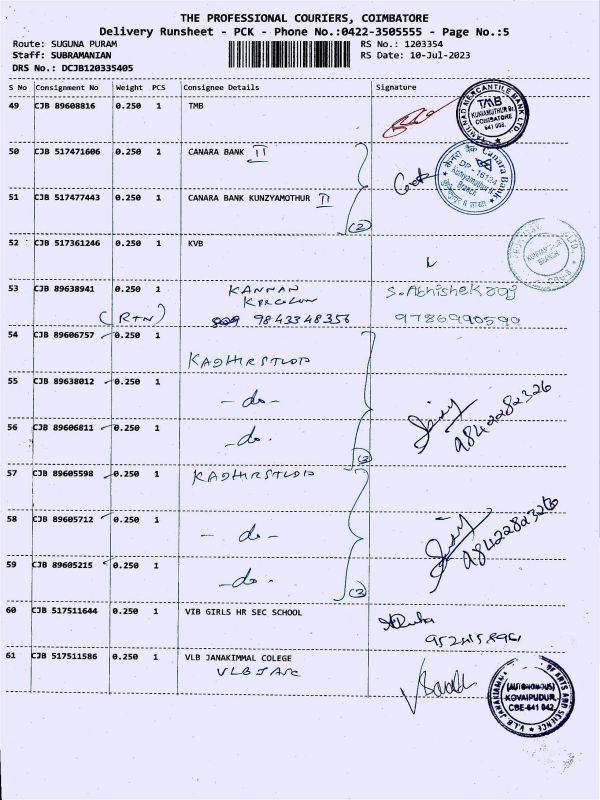 THE PROFESSIONAL COURIERS, COIMBATORE
Delivery Runsheet - PCK - Phone No.:0422-3505555 - Page No.:5
Route: SUGUNA PURAM RS No.: 1203354
Staff: SUBRAMANIAN RS Date: 10-Jul-2023
DRS No.: DCJB120335405
S No Consignment No Weight PCS Consignee Details Signature
49 CJB 89608816 0.250 1 TMB
TAMILNAD MERCANTILE BANK LTD.
TMB
KUNIAMUTHUR Br.
COIMBATORE
641 008.
50 CJB 517471606 0.250 1 CANARA BANK II
Canara Bank
DP - 16124
Kuniyamuthur II
Branch
51 CJB 517477443 0.250 1 CANARA BANK KUNZYAMOTHUR II
(2)
52 CJB 517361246 0.250 1 KVB
53 CJB 89638941 0.250 1 KANNAN S. Abhishek raj
(RTN) 9843348356 9786990590
54 CJB 89606757 0.250 1
KADHIRSTUDIO
55 CJB 89638012 0.250 1
- do -
56 CJB 89606811 0.250 1 9842282326
- do -
(3)
57 CJB 89605598 0.250 1 KADHIRSTUDIO
58 CJB 89605712 0.250 1
- do - 9842282326
59 CJB 89605215 0.250 1
- do -
(3)
60 CJB 517511644 0.250 1 VIB GIRLS HR SEC SCHOOL
61 CJB 517511586 0.250 1 VLB JANAKIMMAL COLEGE
VLBJASC
(AUTONOMOUS)
KOVAIPUDUR,
CBE-641 042.